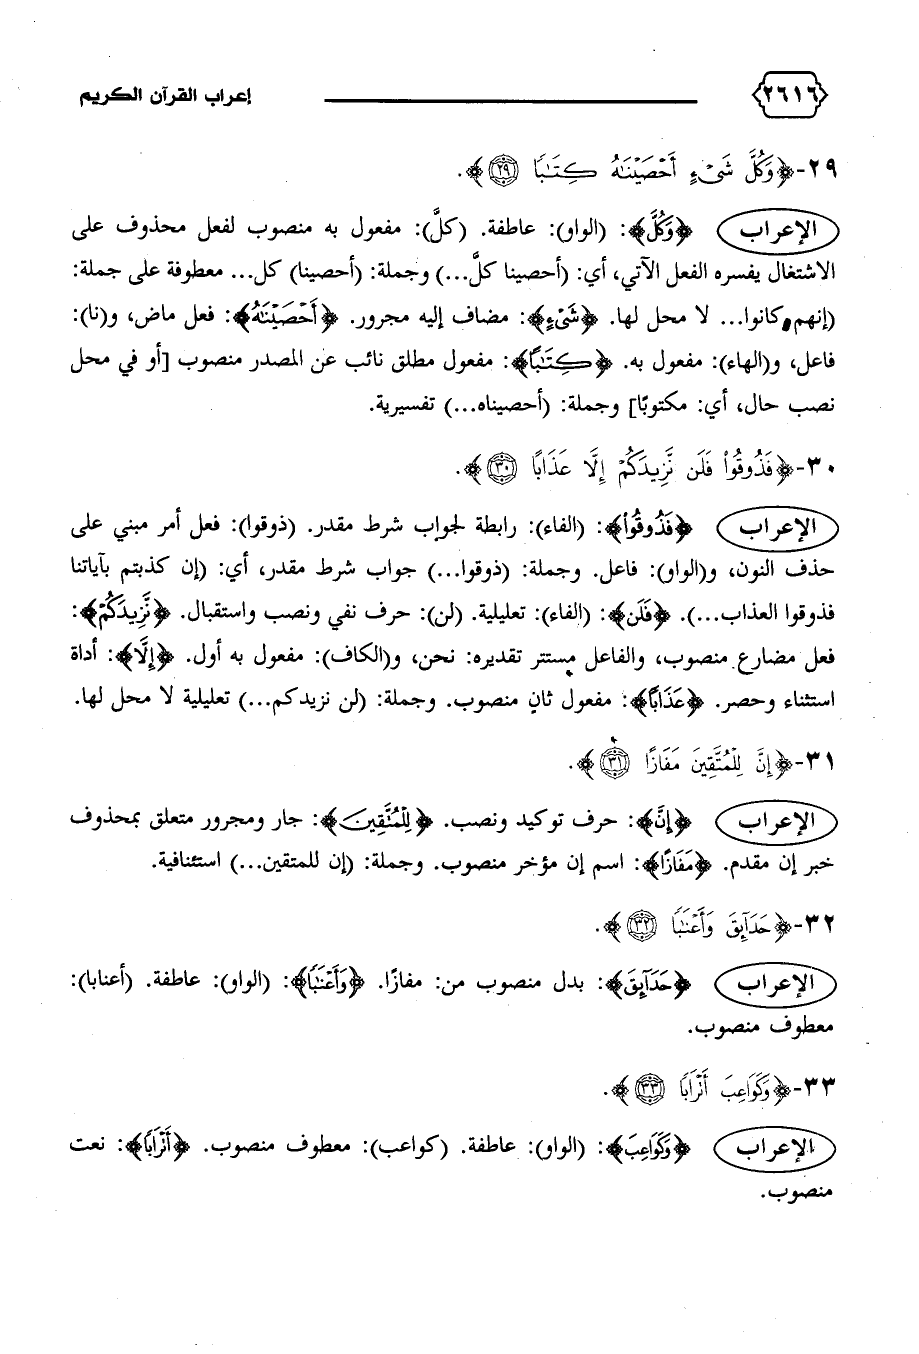 ٢٦١٦ إعراب القرآن الكريم
٢٩-﴿وَكُلَّ شَىْءٍ أَحْصَيْنَٰهُ كِتَٰبًا ٢٩﴾.
الإعراب ﴿وَكُلَّ﴾: (الواو): عاطفة. (كلَّ): مفعول به منصوب لفعل محذوف على
الاشتغال يفسره الفعل الآتي، أي: (أحصينا كلَّ...) وجملة: (أحصينا) كل... معطوفة على جملة:
(إنهم كانوا... لا محل لها. ﴿شَىْءٍ﴾: مضاف إليه مجرور. ﴿أَحْصَيْنَٰهُ﴾: فعل ماض، و(نا):
فاعل، و(الهاء): مفعول به. ﴿كِتَٰبًا﴾: مفعول مطلق نائب عن المصدر منصوب [أو في محل
نصب حال، أي: مكتوبًا] وجملة: (أحصيناه...) تفسيرية.
٣٠-﴿فَذُوقُوا۟ فَلَن نَّزِيدَكُمْ إِلَّا عَذَابًا ٣٠﴾.
الإعراب ﴿فَذُوقُوا۟﴾: (الفاء): رابطة لجواب شرط مقدر. (ذوقوا): فعل أمر مبني على
حذف النون، و(الواو): فاعل. وجملة: (ذوقوا...) جواب شرط مقدر، أي: (إن كذبتم بآياتنا
فذوقوا العذاب...). ﴿فَلَن﴾: (الفاء): تعليلية. (لن): حرف نفي ونصب واستقبال. ﴿نَّزِيدَكُمْ﴾:
فعل مضارع منصوب، والفاعل مستتر تقديره: نحن، و(الكاف): مفعول به أول. ﴿إِلَّا﴾: أداة
استثناء وحصر. ﴿عَذَابًا﴾: مفعول ثانٍ منصوب. وجملة: (لن نزيدكم...) تعليلية لا محل لها.
٣١-﴿إِنَّ لِلْمُتَّقِينَ مَفَازًا ٣١﴾.
الإعراب ﴿إِنَّ﴾: حرف توكيد ونصب. ﴿لِلْمُتَّقِينَ﴾: جار ومجرور متعلق بمحذوف
خبر إن مقدم. ﴿مَفَازًا﴾: اسم إن مؤخر منصوب. وجملة: (إن للمتقين...) استئنافية.
٣٢-﴿حَدَآئِقَ وَأَعْنَٰبًا ٣٢﴾.
الإعراب ﴿حَدَآئِقَ﴾: بدل منصوب من: مفازًا. ﴿وَأَعْنَٰبًا﴾: (الواو): عاطفة. (أعنابا):
معطوف منصوب.
٣٣-﴿وَكَوَاعِبَ أَتْرَابًا ٣٣﴾.
الإعراب ﴿وَكَوَاعِبَ﴾: (الواو): عاطفة. (كواعب): معطوف منصوب. ﴿أَتْرَابًا﴾: نعت
منصوب.